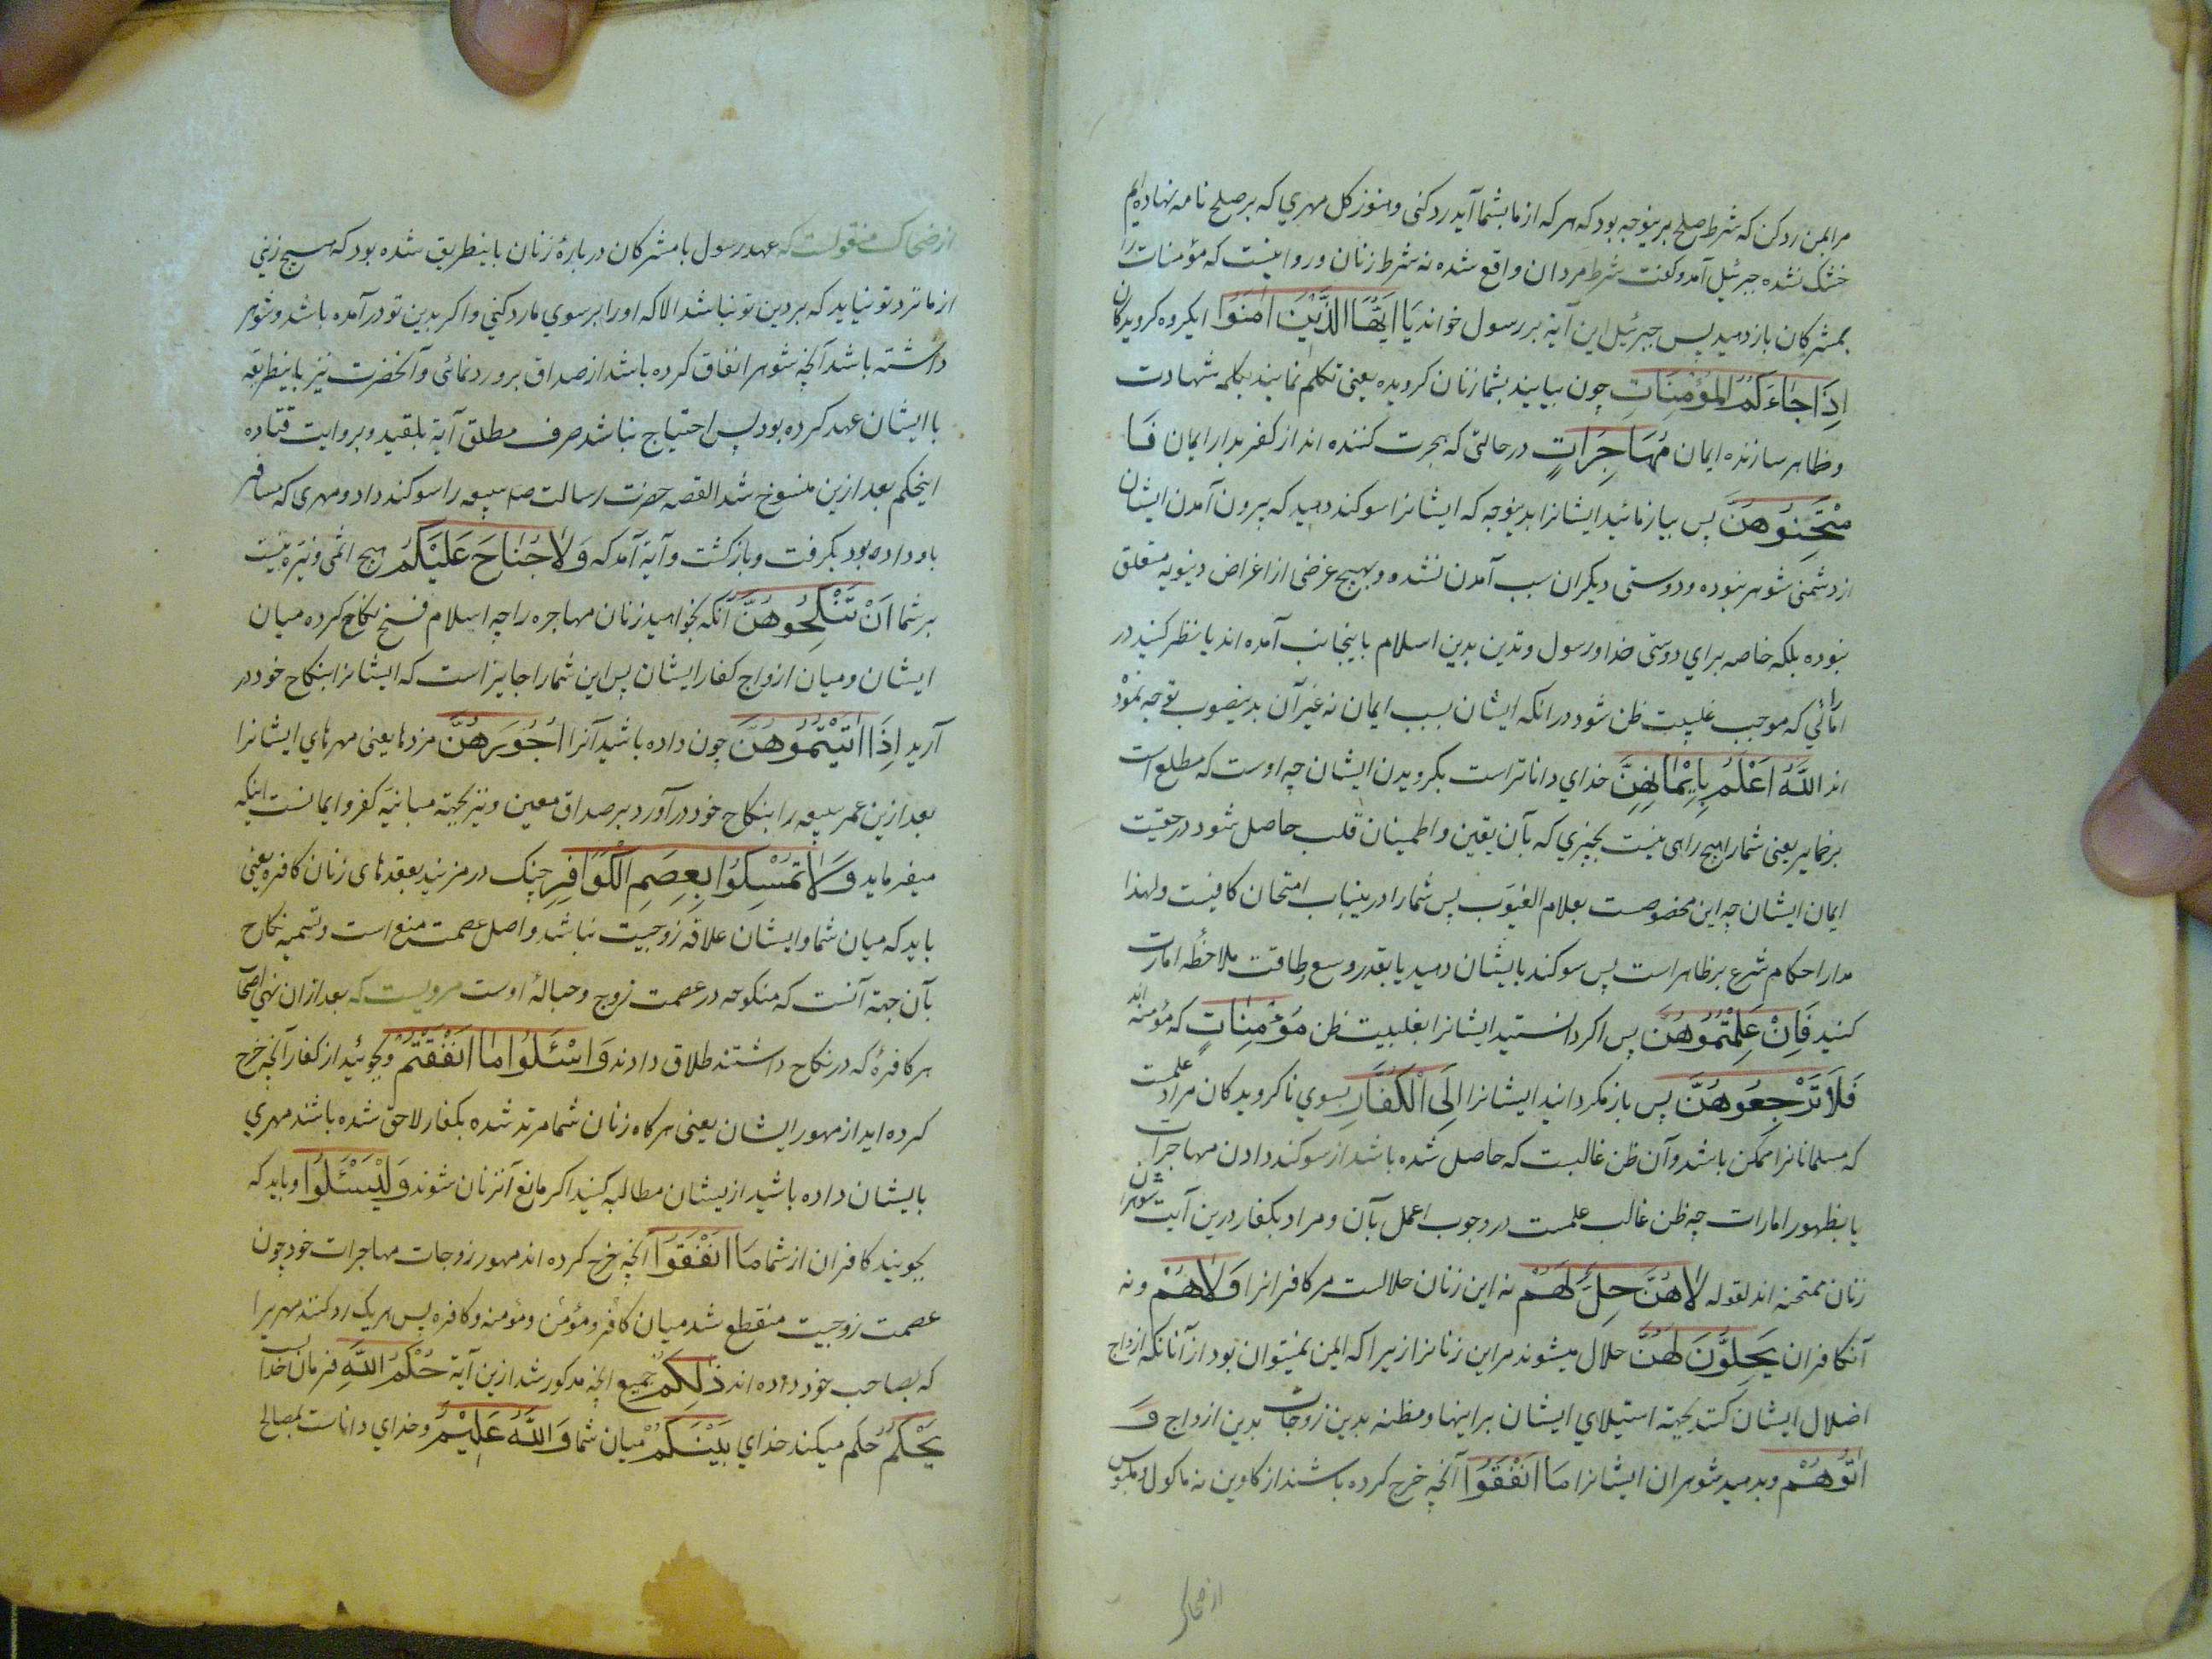 مرا بمن رد کن که شرط صلح برینوجه بود که هر که از ما بشما آید رد کنی و هنوز کل مهری که بر صلح نامه نهاده‌ایم
خشک نشده جبرئیل آمد و کفت شرط مردان واقع شده نه شرط زنان و روا نیست که مؤمنات را
بمشرکان باز دهید پس جبرئیل این آیة بر رسول خواند یَا اَیُّهَا الَّذِیْنَ اٰمَنُوا ایکروه کرویدکان
اِذَا جَاءَکُمُ الْمُؤْمِنَاتِ چون بیایند بشما زنان کرویده یعنی تکلم نمایند بکلمه شهادت
و ظاهر سازنده ایمان مُهَاجِرَاتٍ در حالتی که هجرت کننده اند از کفر بدار ایمان فَا
مْتَحِنُوهُنَّ پس بیازمائید ایشانرا بدینوجه که ایشانرا سوکند دهید که بیرون آمدن ایشان
از دشمنی شوهر نبوده و دوستی دیکران سبب آمدن نشده و بهیچ غرضی از اغراض دنیویه متعلق
نبوده بلکه خاصه برای دوستی خدا و رسول و تدین بدین اسلام باینجانب آمده اند یا نظر کنید در
اماراتی که موجب غلبیت ظن شود در انکه ایشان بسبب ایمان نه غیر آن بدینصوب توجه نموده
اند اللّٰهُ اَعْلَمُ بِاِیْمَانِهِنَّ خدای داناتر است بکرویدن ایشان چه اوست که مطلع است
بر ضمایر یعنی شما را هیچ راهی نیست بچیزی که بآن یقین و اطمینان قلب حاصل شود در حقیت
ایمان ایشان چه این مخصوصست بعلام الغیوب پس شما را درینباب امتحان کافیست و لهذا
مدار احکام شرع بر ظاهر است پس سوکند بایشان دهید یا بقدر وسع و طاقت ملاحظه امارات
کنید فَاِنْ عَلِمْتُمُوهُنَّ پس اکر دانستید ایشانرا بغلبیت ظن مُؤْمِنَاتٍ که مؤمنه اند
فَلَا تَرْجِعُوهُنَّ پس باز مکردانید ایشانرا اِلَی الْکُفَّارِ بسوی ناکرویدکان مراد علمست
که مسلمانانرا ممکن باشد و آن ظن غالبست که حاصل شده باشد از سوکند دادن مهاجرات
یا بظهور امارات چه ظن غالب علمست در وجوب اعمل بآن و مراد بکفار درین آیت شوهران
زنان ممتحنه اند لقوله لَاهُنَّ حِلٌّ لَهُمْ نه این زنان حلالست مر کافرانرا وَلَاهُمْ و نه
آنکافران یَحِلُّوْنَ لَهُنَّ حلال میشوند مر این زنانرا زیرا که ایمن نمیتوان بود از آنانکه ازواج
اضلال ایشان کنند بجهة استیلای ایشان بر اینها و مظنه بدین زوجات بدین ازواج وَ
اٰتُوْهُمْ و بدهید شوهران ایشانرا مَا اَنْفَقُوْا آنچه خرج کرده باشند از کاوین نه ماکول و ملبوس
از ضحاک
از ضحاک منقولست که عهد رسول با مشرکان دربارهٔ زنان باینطریق شده بود که هیچ زنی
از ما نزد تو نیاید که بر دین تو نباشد الا که او را بر سوی ما رد کنی و اکر بدین تو درآمده باشد و شوهر
داشته باشد آنچه شوهر انفاق کرده باشد از صداق برو رد نمائی و آنحضرت نیز باینطریقه
با ایشان عهد کرده بود پس احتیاج نباشد صرف مطلق آیة بمقید و بروایت قتاده
اینحکم بعد ازین منسوخ شد القصه حضرت رسالت سبیعه را سوکند داد و مهری که مسافر
باو داده بود بکرفت و باز کشت و آیة آمد که وَلَا جُنَاحَ عَلَیْکُمْ هیچ اثمی و نیست
بر شما اَنْ تَنْکِحُوهُنَّ آنکه بخواهید زنان مهاجره را چه اسلام فسخ نکاح کرده میان
ایشان و میان ازواج کفار ایشان پس این شما را جایز است که ایشانرا بنکاح خود در
آرید اِذَا اٰتَیْتُمُوْهُنَّ چون داده باشید آنرا اُجُوْرَهُنَّ مزدها یعنی مهرهای ایشانرا
بعد ازین عمر سبیعه را بنکاح خود درآورد بر صداق معین و نیز بجهة مباینة کفر و ایمانست اینکه
میفرماید وَلَا تُمْسِکُوْا بِعِصَمِ الْکَوَافِرِ چنک در مزنید بعقدهای زنان کافره یعنی
باید که میان شما و ایشان علاقه زوجیت نباشد و اصل عصمت منع است و تسمیه نکاح
بآن جهة آنست که منکوحه در عصمت زوج و حبالهٔ اوست مرویست که بعد ازان نهی اصحاب
هر کافرهٔ که در نکاح داشتند طلاق دادند وَاسْئَلُوا مَا اَنْفَقْتُمْ و بجوئید از کفار آنچه خرج
کرده اید از مهور ایشان یعنی هرکاه زنان شما مرتد شده بکفار لاحق شده باشند مهری
بایشان داده باشید ازیشان مطالبه کنید اکر مانع آنزنان شوند وَلْیَسْئَلُوْا و باید که
بجویند کافران از شما مَا اَنْفَقُوْا آنچه خرج کرده اند مهور زوجات مهاجرات خود چون
عصمت زوجیت منقطع شد میان کافر و مؤمن و مؤمنه و کافره پس هر یک رد کنند مهریرا
که بصاحب خود داده اند ذٰلِکُمْ جمیع آنچه مذکور شد ازین آیة حُکْمُ اللّٰهِ فرمان خداست
یَحْکُمُ حکم میکند خدای بَیْنَکُمْ میان شما وَاللّٰهُ عَلِیْمٌ و خدای داناست بمصالح